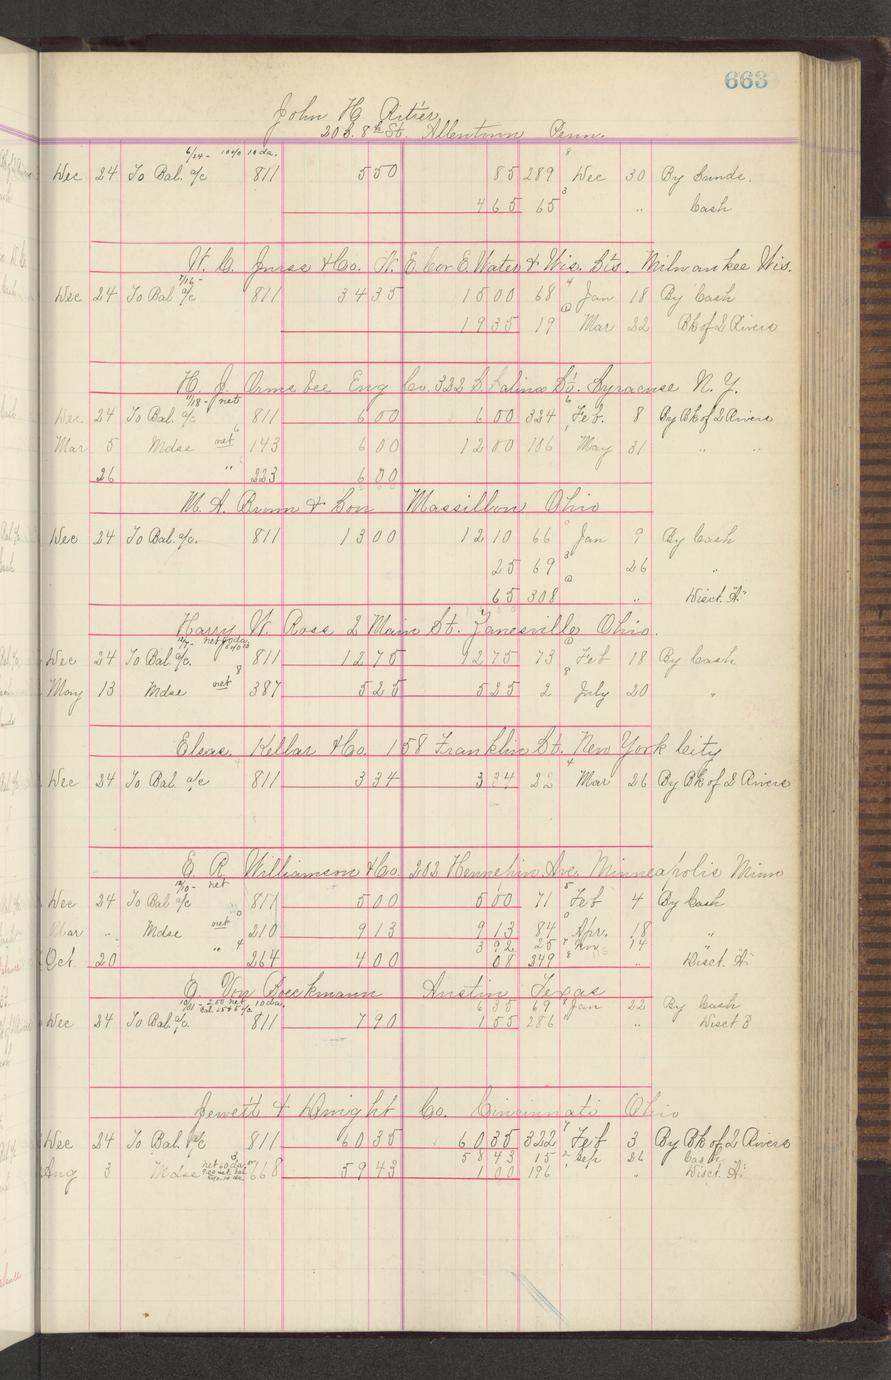 663
John H.
20 S. 8th St. Allentown Penn.
6/24- 10% 10 da.
Dec 24 To Bal. a/c 811 5 50 85 289 Dec 30 By Sunds.
4 65 65 " Cash
& Co. N. E. Cor E. Water & Wis. Sts. Milwaukee Wis.
7/16-
Dec 24 To Bal a/c 811 34 35 15 00 68 Jan 18 By Cash
19 35 19 Mar 22 Bk of 2 Rivers
H. J. Ormsbee Eng Co. 322 S Salina St. Syracuse N. Y.
11/18- net
Dec 24 To Bal. a/c 811 6 00 6 00 324 Feb. 8 By Bk of 2 Rivers
Mar 5 Mdse net 143 6 00 12 00 106 May 31 " "
26 " 223 6 00
M. A. Brown & Son Massillon Ohio
Dec 24 To Bal. a/c. 811 13 00 12 10 66 Jan 9 By Cash
25 69 26 "
65 308 " Disct. "A"
Harry W. Ross 2 Main St. Zanesville Ohio.
Dec 24 To Bal. a/c. 811 12 75 12 75 73 Feb 18 By Cash
May 13 Mdse net 387 5 25 5 25 2 July 20 "
Elsas. Kellar & Co. 158 Franklin St. New York City
Dec 24 To Bal. a/c 811 3 34 3 34 22 Mar 26 By Bk of 2 Rivers
E. R. Williamson & Co. 202 Hennepin Ave. Minneapolis Minn
12/10- net
Dec 24 To Bal a/c 811 5 00 5 00 71 Feb 4 By Cash
Mar " Mdse net 210 9 13 9 13 84 Apr. 18 "
3 92 25 Nov 14 "
Oct. 20 " 264 4 00 08 249 " Disct. "A"
Von Boeckmann Austin Texas
6 35 69 Jan 22 By Cash
Dec 24 To Bal a/c. 811 7 90 1 55 286 " Disct B
Jewett & Dwight Co. Cincinnati Ohio
Dec 24 To Bal. a/c 811 60 35 60 35 322 Feb 3 By Bk of 2 Rivers
58 43 15 Sep 26 Cash
Aug 3 Mdse 668 59 43 1 00 196 " Disct. "A"